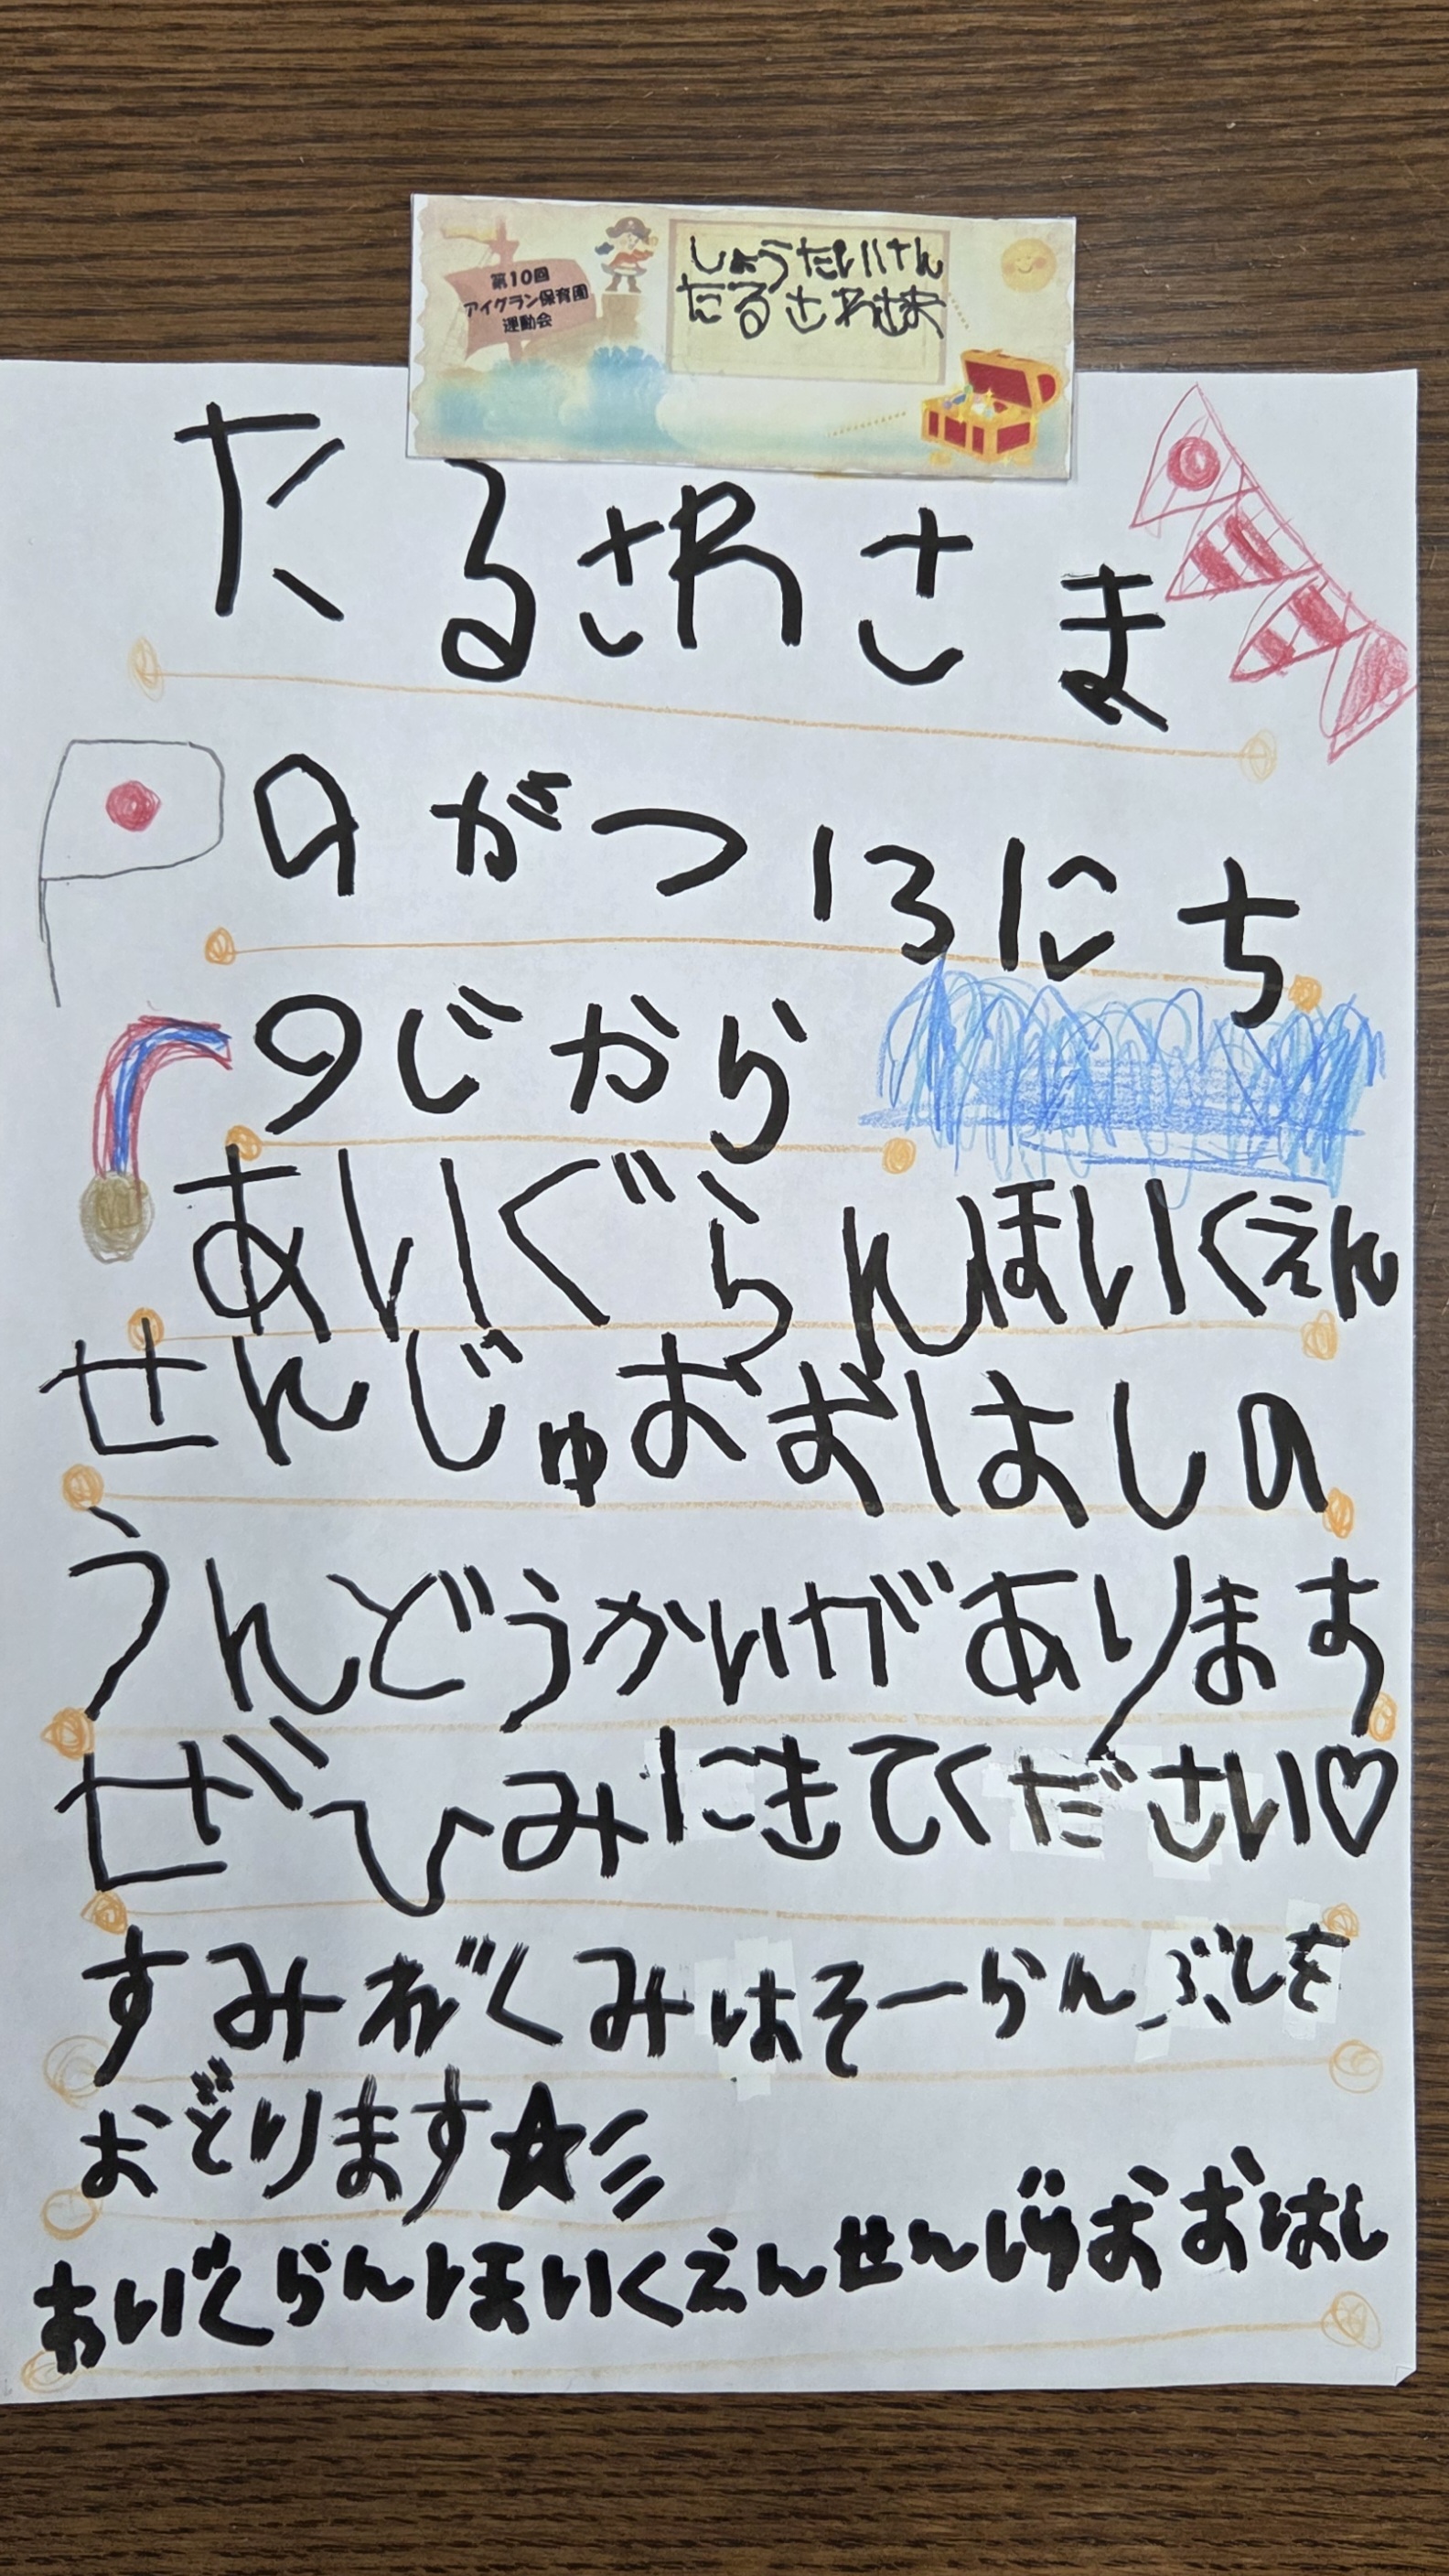 第10回
アイグラン保育園
運動会
しょうたいけん
たるさわさま
たるさわさま
9がつ13にち
9じから
あいぐらんほいくえん
せんじゅおおはしの
うんどうかいがあります
ぜひみにきてください♡
すみれぐみはそーらんぶしを
おどります★
あいぐらんほいくえんせんじゅおおはし